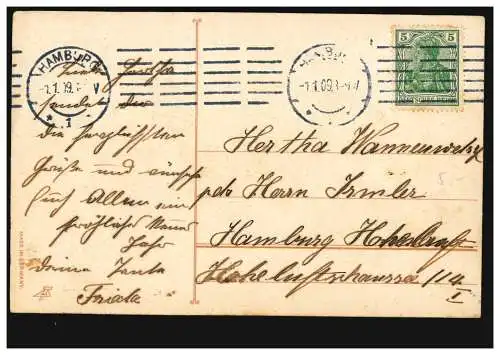 HAMBURG
1.1.09. V
* 1 *
HAMBURG
1.1.09. V
5 5
Liebe Hertha
sendet dir
die herzlichsten
Grüße und wünscht
Euch Allen ein
fröhliches Neues
Jahr
deine Tante
Frieda
Hertha
Herrn Irmler
Hamburg
Hoheluftchaussee 114
I
MADE IN GERMANY
5.-